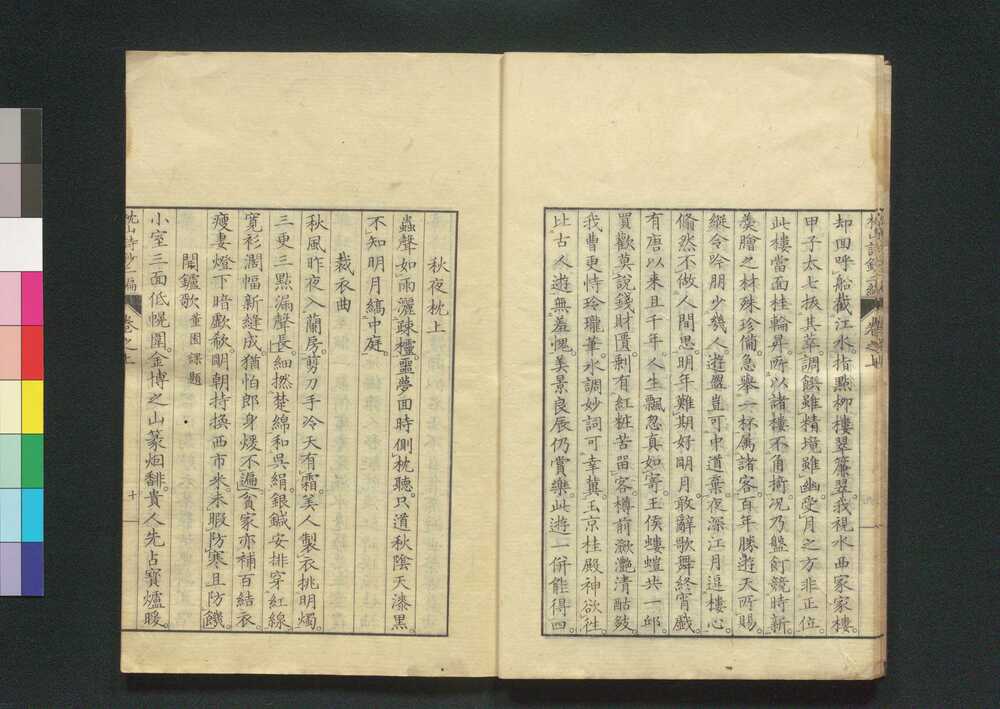 却回呼船截江水指點柳樓翠簾翠。我視水西家家樓。
甲子太七抜其萃。調饌雖精境雖幽。受月之方非正位。
此樓當面桂輪昇。所以諸樓不角掎。況乃盤飣競時新。
羹膾之材殊珍備。急舉一杯属諸客。百年勝遊天所賜。
縱令吟朋少幾人。遊盟豈可中道棄。夜深江月逗樓心。
翛然不做人間思。明年難期好明月。敢辭歌舞終宵戲。
有唐以来且千年。人生飄忽真如寄。王侯螻螘共一邱。
買歡莫説錢財匱。剰有紅粧苦畱客。樽前瀲灔清酤釹。
我曹更恃玲瓏筆。水調妙詞可幸冀。玉京桂殿神欲往。
比古人遊無羞愧。美景良辰仍賞樂。此遊一併能得四。
秋夜枕上
蟲聲如雨灑踈櫺。靈夢回時側枕聽。只道秋陰天漆黒。
不知明月縞中庭。
裁衣曲
秋風昨夜入蘭房。剪刀手冷天有霜。美人製衣挑明燭。
三更三點漏聲長。細撚楚綿和吳絹。銀鍼安排穿紅線。
寛衫濶幅新縫成。猶怕郎身煖不遍。貧家亦補百結衣。
瘦妻燈下暗歔欷。明朝持換西市米。未暇防寒且防饑。
閙鑪歌 菫園課題
小室三面低幌圍。金博之山篆烟馡。貴人先占寶爐暖。
枕山詩鈔二編 卷之上 十